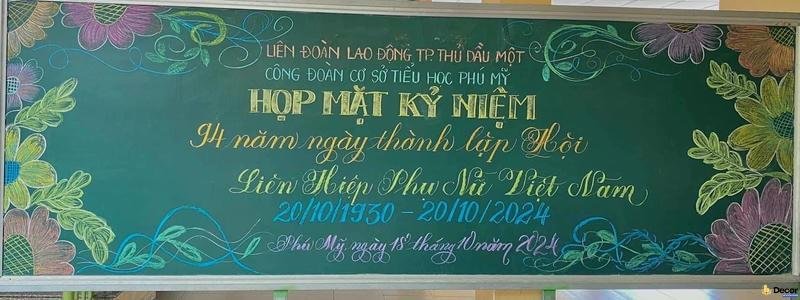 LIÊN ĐOÀN LAO ĐỘNG TP. THỦ DẦU MỘT
CÔNG ĐOÀN CƠ SỞ TIỂU HỌC PHÚ MỸ
HỌP MẶT KỶ NIỆM
94 năm ngày thành lập Hội
Liên Hiệp Phụ Nữ Việt Nam
20/10/1930 - 20/10/2024
Phú Mỹ, ngày 18 tháng 10 năm 2024
Decor